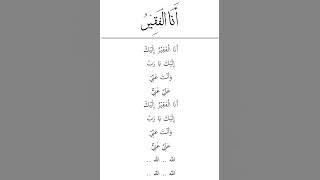 أَنَا الْفَقِيْرُ
أَنَا الْفَقِيْرُ إِلَيْكَ
إِلَيْكَ يَا رَبّ
وَأَنْتَ عَنِّيْ
عَنِّيْ غَنِيٌّ
أَنَا الْفَقِيْرُ إِلَيْكَ
إِلَيْكَ يَا رَبّ
وَأَنْتَ عَنِّيْ
عَنِّيْ غَنِيٌّ
الله .. الله ..
الله .. الله ..